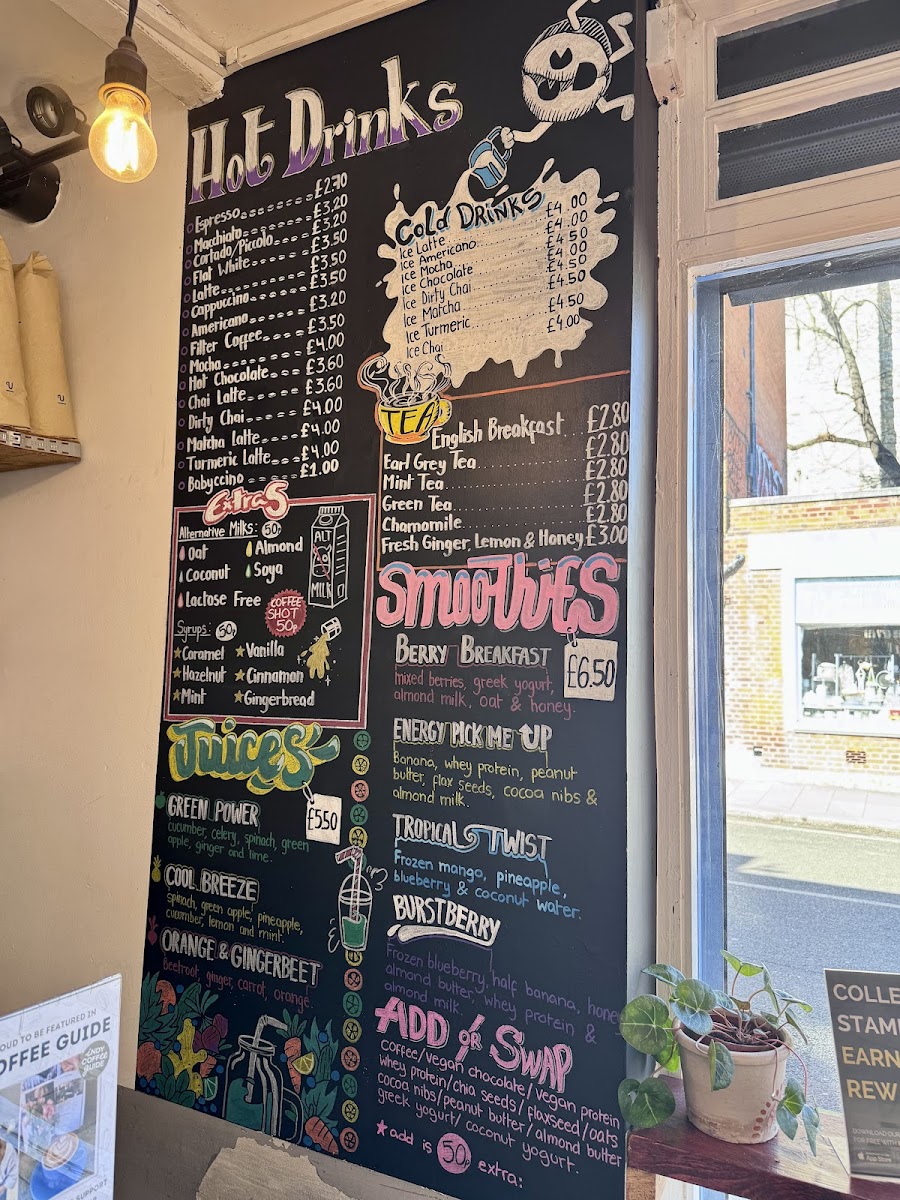 Hot Drinks
Espresso £2.70
Macchiato £3.20
Cortado/Piccolo £3.20
Flat White £3.50
Latte £3.50
Cappuccino £3.50
Americano £3.20
Filter Coffee £3.50
Mocha £4.00
Hot Chocolate £3.60
Chai Latte £3.60
Dirty Chai £4.00
Matcha Latte £4.00
Turmeric Latte £4.00
Babyccino £1.00
Extras
Alternative Milks: 50p
Oat Almond
Coconut Soya
Lactose Free
ALT
MILK
COFFEE
SHOT
50p
Syrups: 50p
Caramel Vanilla
Hazelnut Cinnamon
Mint Gingerbread
Juices
£5.50
GREEN POWER
cucumber, celery, spinach, green
apple, ginger and lime.
COOL BREEZE
spinach, green apple, pineapple,
cucumber, lemon and mint.
ORANGE & GINGERBEET
Beetroot, ginger, carrot, orange
COLD DRINKS
Ice Latte £4.00
Ice Americano £4.00
Ice Mocha £4.50
Ice Chocolate £4.00
Ice Dirty Chai £4.50
Ice Matcha £4.50
Ice Turmeric £4.50
Ice Chai £4.00
TEA
English Breakfast £2.80
Earl Grey Tea £2.80
Mint Tea £2.80
Green Tea £2.80
Chamomile £2.80
Fresh Ginger, Lemon & Honey £3.00
SMOOTHIES
£6.50
BERRY BREAKFAST
mixed berries, greek yogurt,
almond milk, oat & honey.
ENERGY PICK ME UP
Banana, whey protein, peanut
butter, flax seeds, cocoa nibs &
almond milk.
TROPICAL TWIST
Frozen mango, pineapple,
blueberry & coconut water.
BURSTBERRY
Frozen blueberry, half banana, honey
almond butter, whey protein &
almond milk.
ADD or SWAP
coffee/vegan chocolate/vegan protein
whey protein/chia seeds/flaxseed/oats
cocoa nibs/peanut butter/almond butter
greek yogurt/coconut yogurt.
add is 50 extra:
OUD TO BE FEATURED IN
OFFEE GUIDE
INDY
COFFEE
GUIDE
SUPPORT
COLLE
STAM
EARN
REW
DOWNLOAD OUR
FOR FREE WITH
App Store